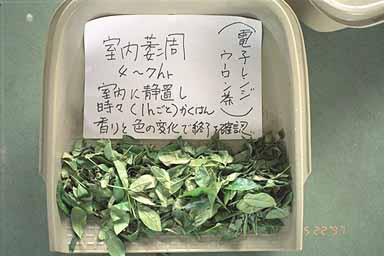 室内萎凋
4〜7hr
室内に静置し
時々(1hrごと)かくはん
香りと色の変化で終了を確認
(電子レンジ
ウーロン茶)
5 22 '97